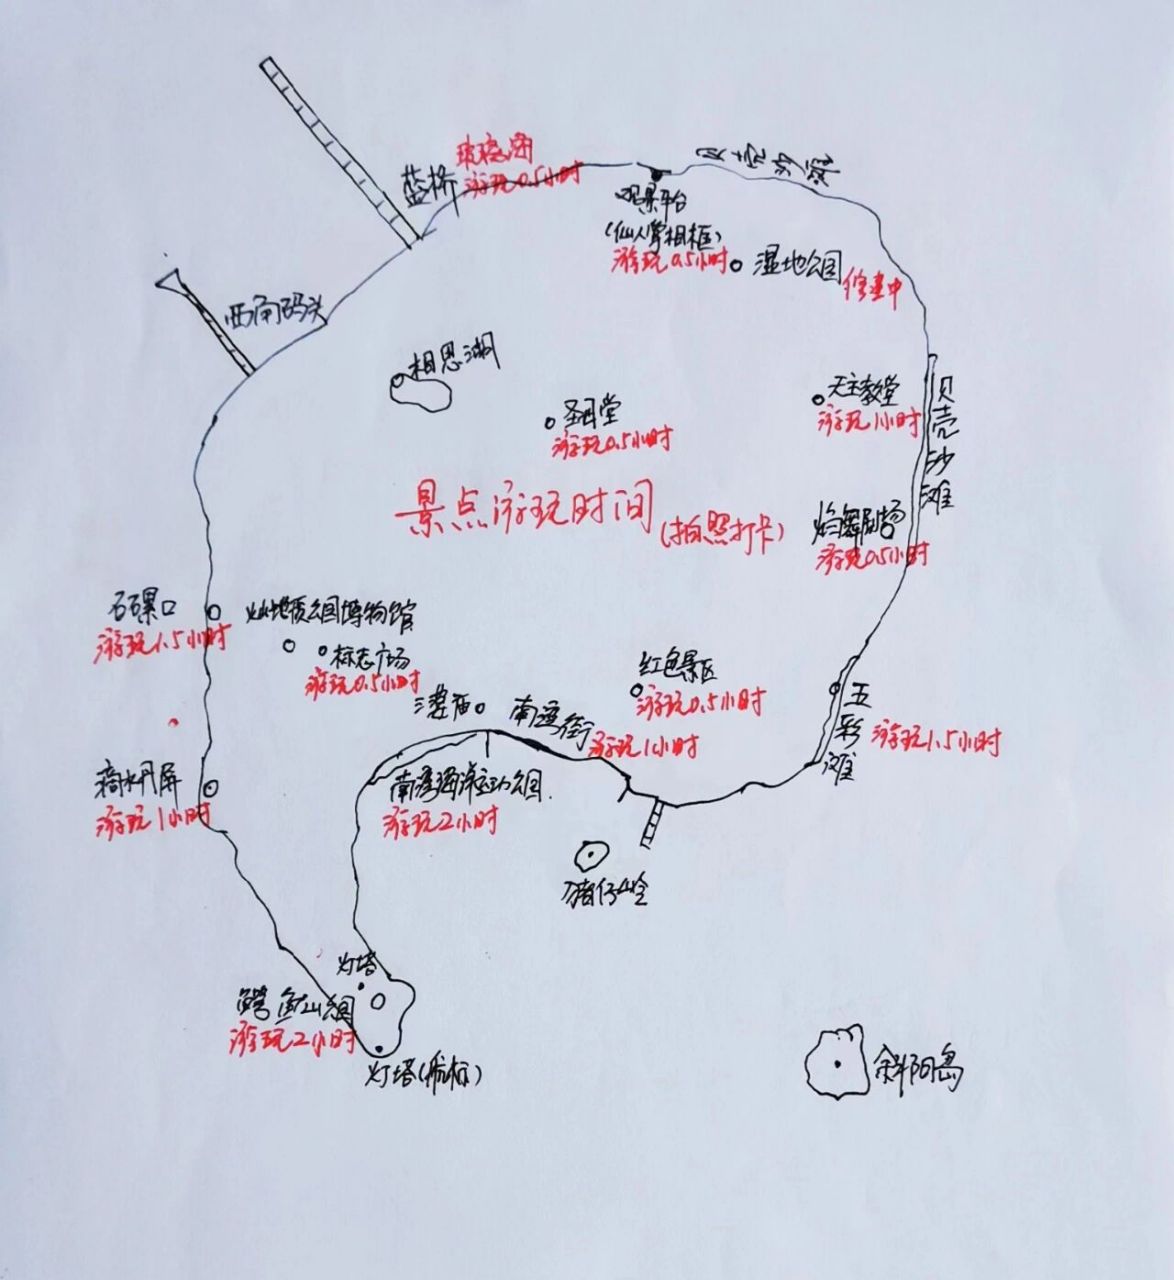 玻璃海
蓝桥
游玩0.5小时
观景平台
(仙人掌相框)
游玩0.5小时
湿地公园
修建中
西角码头
相思湖
圣母堂
游玩0.5小时
天主教堂
游玩1小时
贝壳沙滩
景点游玩时间
(拍照打卡)
游玩0.5小时
石螺口
游玩1.5小时
火山地质公园博物馆
标志广场
游玩0.5小时
红色景区
游玩0.5小时
五彩滩
游玩1.5小时
南湾街
游玩1小时
滴水丹屏
游玩1小时
南湾海洋运动公园
游玩2小时
猪仔岭
灯塔
鳄鱼山公园
游玩2小时
灯塔(航标)
斜阳岛